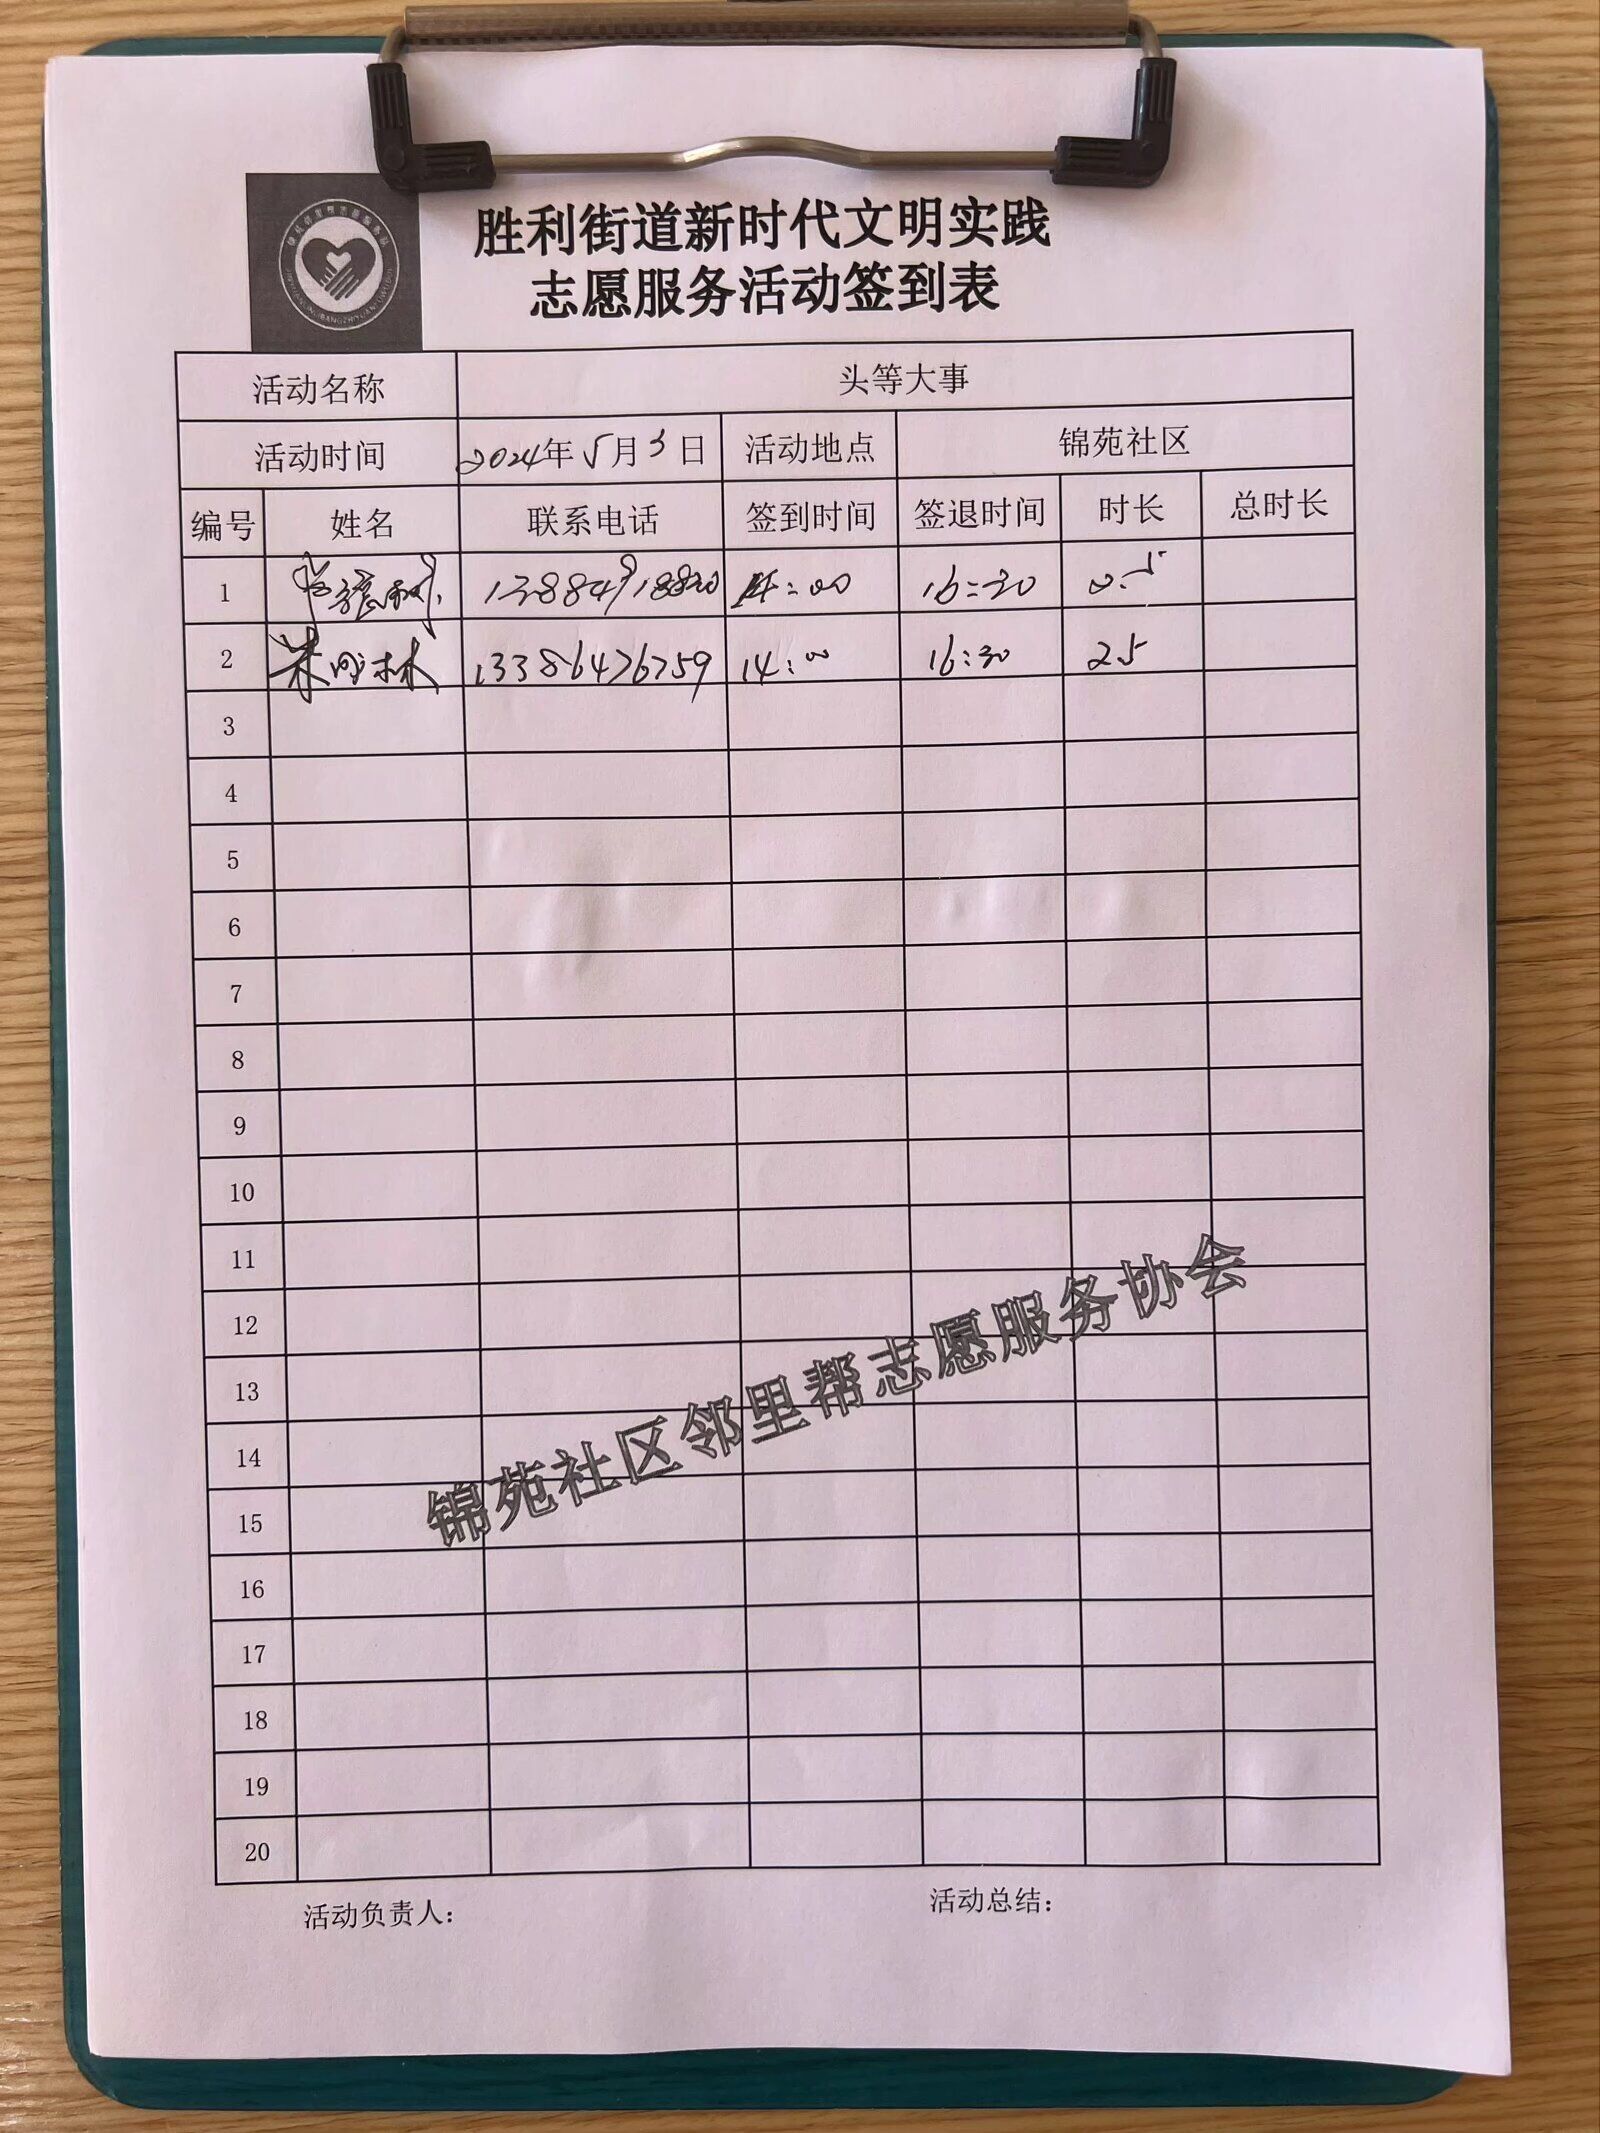 胜利街道新时代文明实践
志愿服务活动签到表
活动名称 头等大事
活动时间 2024年5月3日 活动地点 锦苑社区
编号 姓名 联系电话 签到时间 签退时间 时长 总时长
1 13884918820 14:00 16:30 2.5
2 林 13386476759 14:00 16:30 25
3
4
5
6
7
8
9
10
11
12
13
14
15
16
17
18
19
20
锦苑社区邻里帮志愿服务协会
活动负责人： 活动总结：